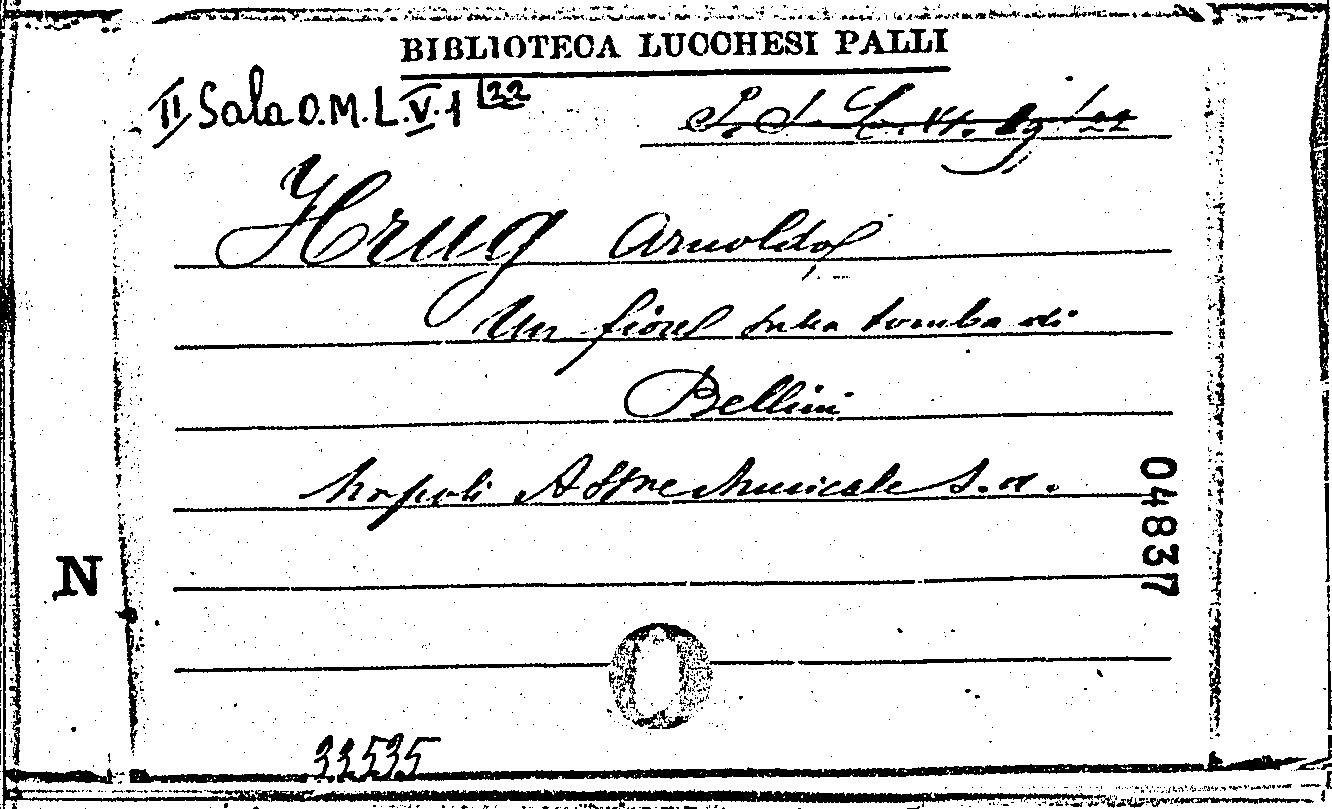 BIBLIOTECA LUCCHESI PALLI
II Sala O.M. L.V.1 22
Krug Arnoldo
Un fiore sulla tomba di
Bellini
Napoli Musicale s.a.
04837
N
33535